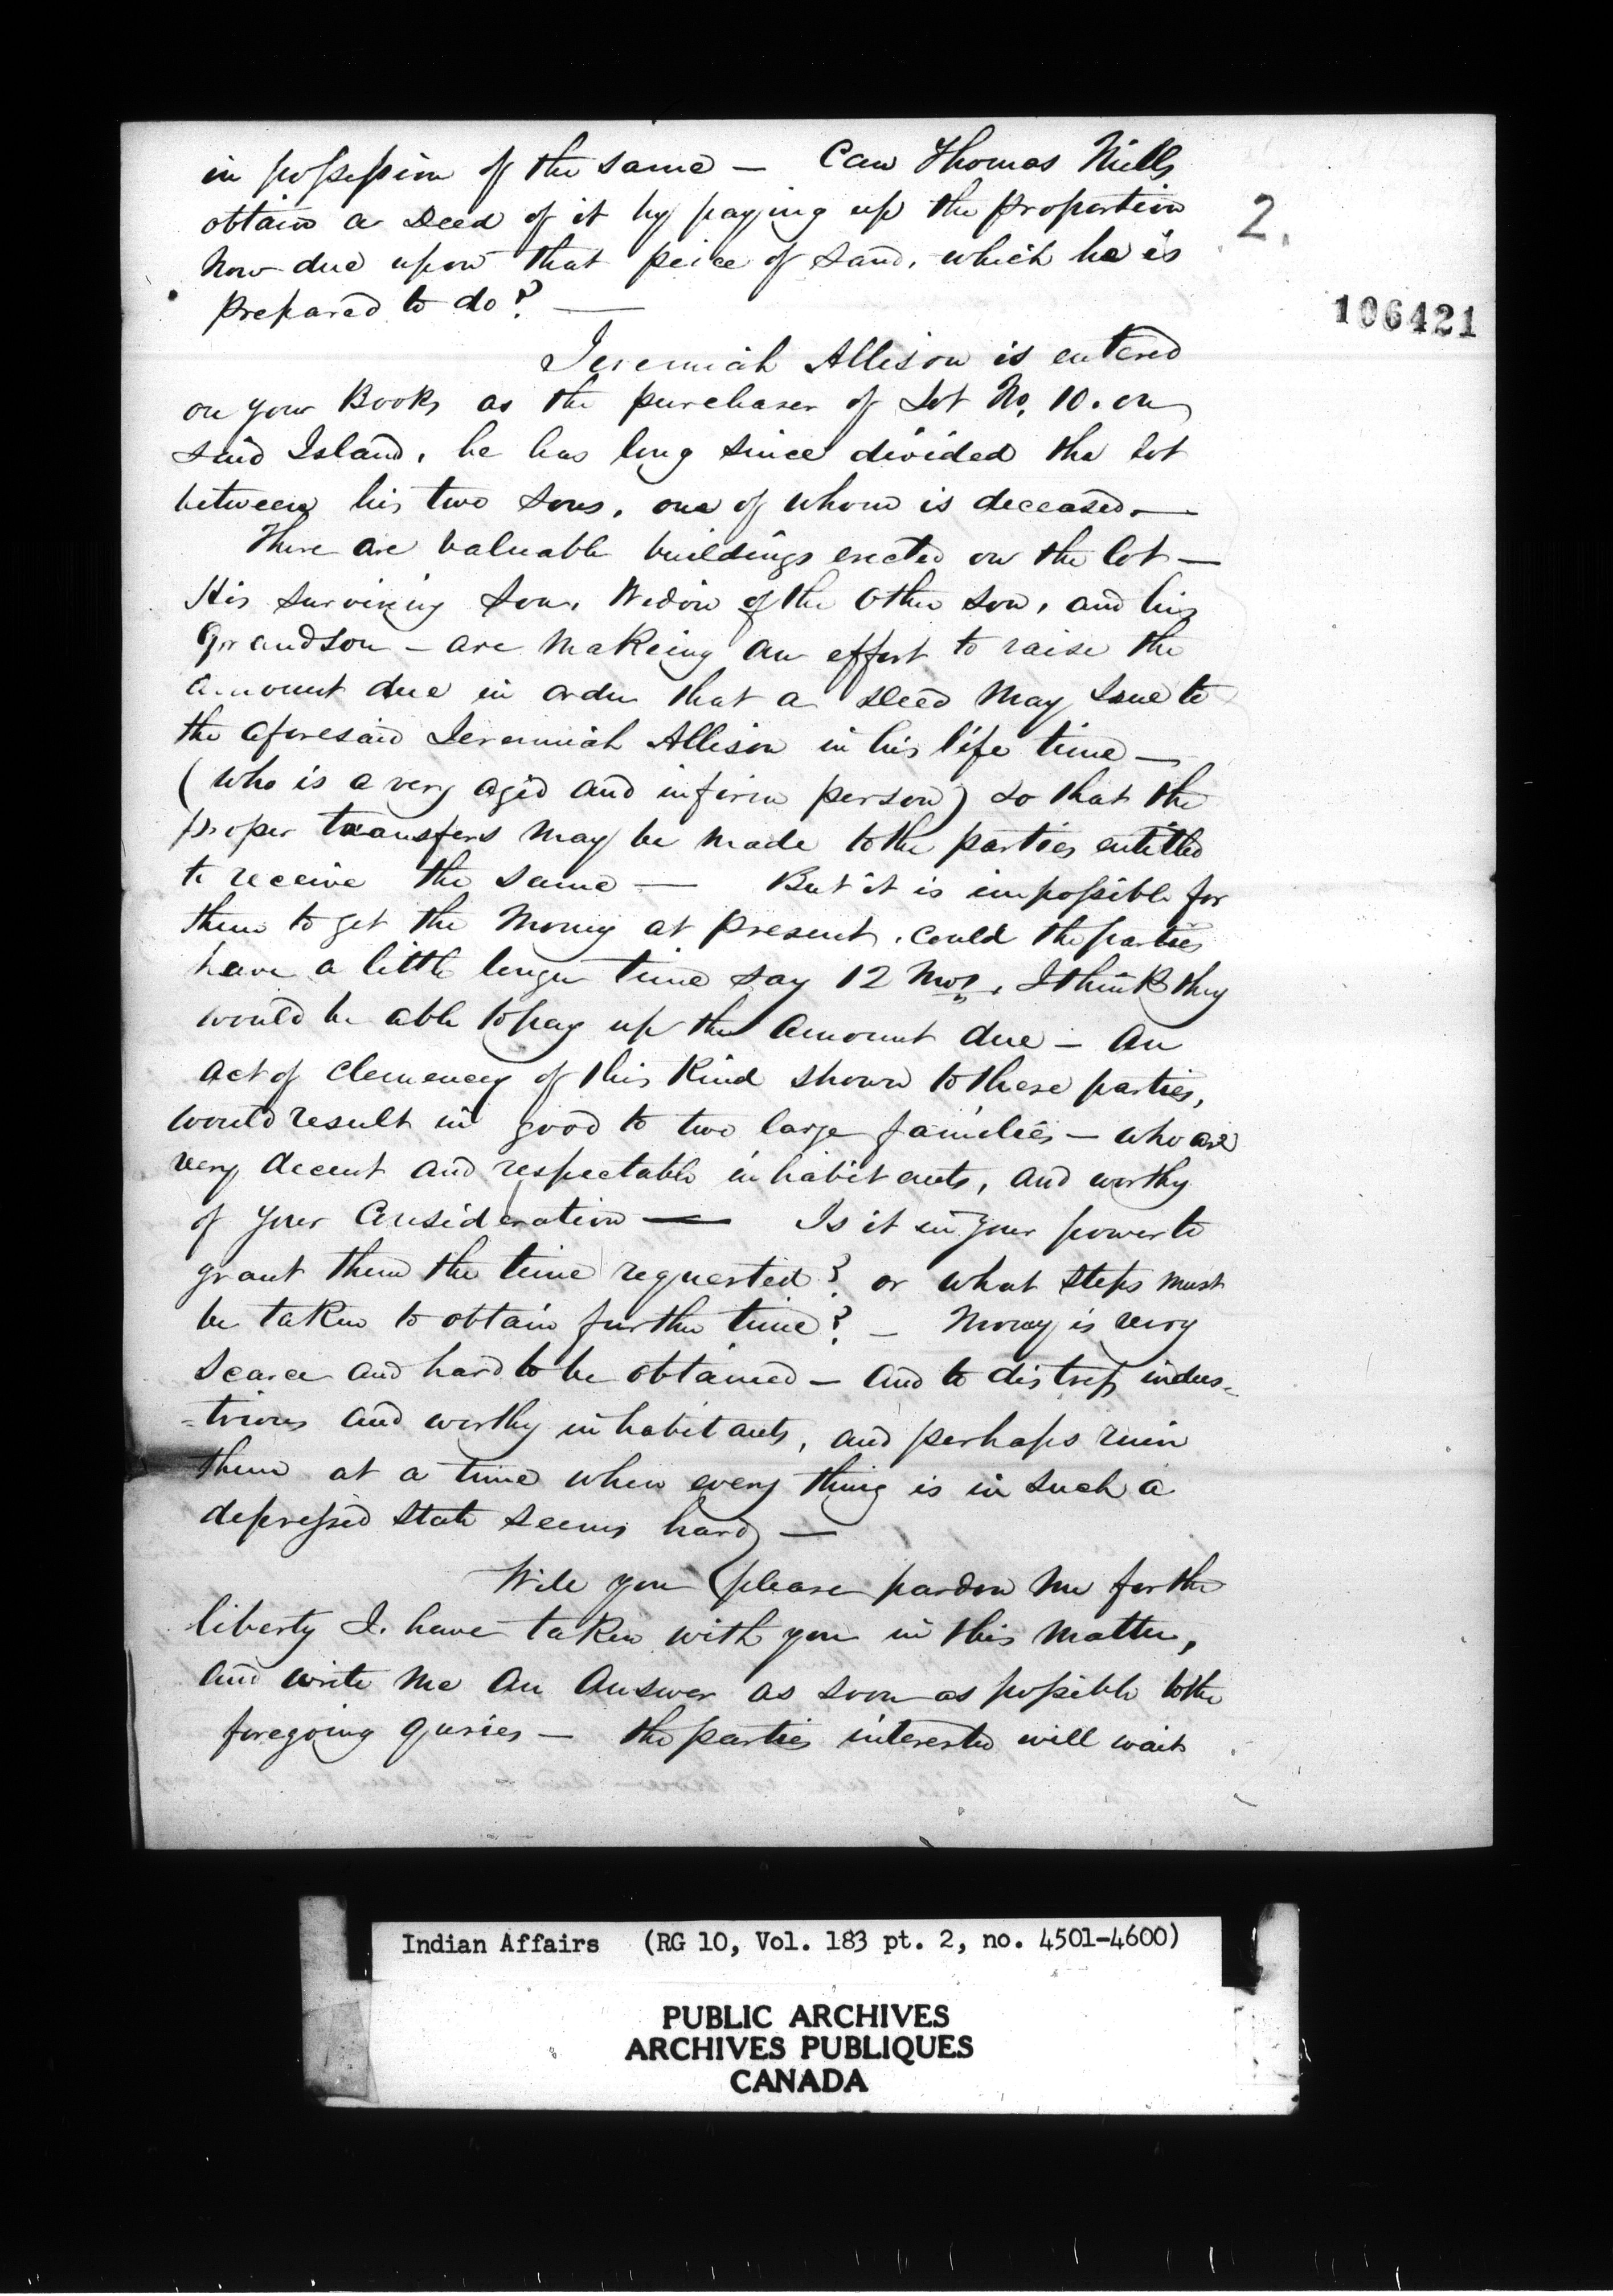 in possession of the same — Can Thomas Mills
obtain a Deed of it by paying up the proportion
2.
now due upon that peice of Land, which he is
prepared to do? —
106421
Jeremiah Allison is entered
on your Books as the purchaser of Lot No. 10. on
said Island, he has long since divided the lot
between his two Sons, one of whom is deceased —
There are valuable buildings erected on the lot —
His surviving Son, Widow of the other son, and his
Grandson — are makeing an effort to raise the
amount due in order that a Deed may Issue to
the aforesaid Jeremiah Allison in his life time —
(who is a very aged and infirm person) so that the
proper transfers may be made to the parties entitled
to receive the same — But it is impossible for
them to get the money at present, could the parties
have a little longer time say 12 mos, I think they
would be able to pay up the amount due — An
act of clemencey of this Kind shown to these parties,
would result in good to two large families — who are
very decent and respectable inhabitants, and worthy
of your Consideration — Is it in your power to
grant them the time requested? or what steps must
be taken to obtain further time? — Money is very
scarce and hard to be obtained — and to distress indus-
-trious and worthy inhabitants, and perhaps ruin
them at a time when every thing is in such a
depressed state seems hard —
Will you please pardon me for the
liberty I. have taken with you in this matter,
and write me an answer as soon as possible to the
foregoing quries — the parties interested will wait
Indian Affairs (RG 10, Vol. 183 pt. 2, no. 4501-4600)
PUBLIC ARCHIVES
ARCHIVES PUBLIQUES
CANADA